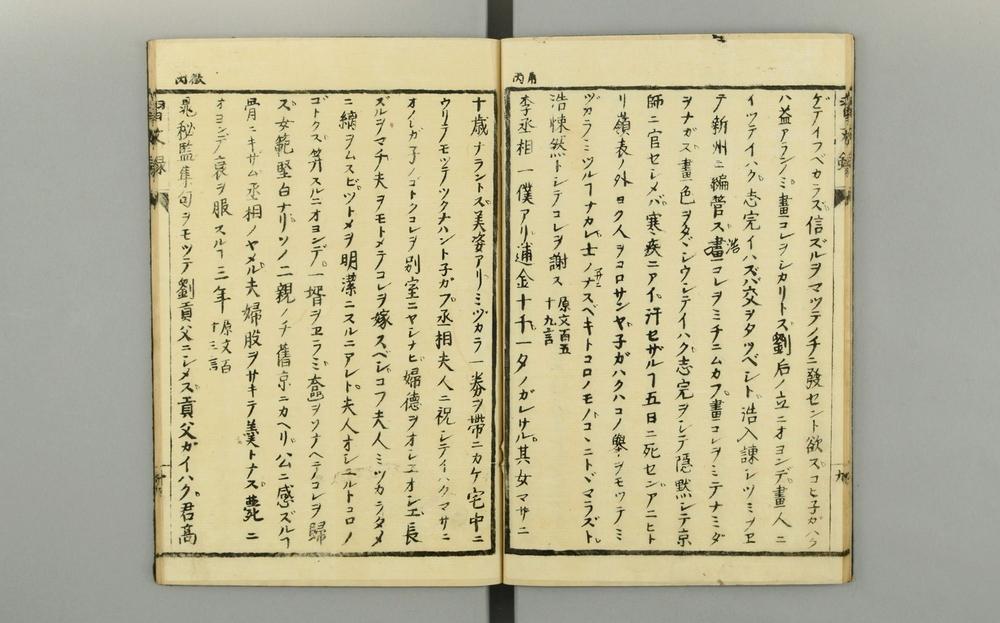 ゲデイフベカラズ信ズルヲマツテノチニ發セント欲スコヒ子ガハク
ハ益アランノミ畫コレヲシカリトス劉后ノ立ニオヨンデ畫人ニ
イツテイハク志完イハズバ交ヲタツベシト浩入諫シツミヲエ
テ新州ニ編管ス畫コレヲミチニムカフ浩コレヲミテナミダ
ヲナガス畫色ヲタヾシウシテイハク志完ヲシテ隱默シテ京
師ニ官セシメバ寒疾ニアイ汗セザルヿ五日ニ死センアニヒト
リ嶺表ノ外ヨク人ヲコロサンヤ子ガハクハコノ擧ヲモツテミ
ヅカラミツルヿナカレ士ノナスベキトコロノモノコヽニトヾマラズト
浩悚然トシテコレヲ謝ス 原文百五十九言
李丞相一僕アリ逋金十千一夕ノガレサル其女マサニ
十歳ナラントス美姿アリミヅカラ一券ヲ帶ニカケ宅中ニ
ウリテモツテツクナハント子ガフ丞相夫人ニ祝シテイハクマサニ
オノレガ子ノゴトクコレヲ別室ニヤシナヒ婦德ヲオシエオシエ長
ズルヲマチ夫ヲモトメテコレヲ嫁スベシコフ夫人ミツカラタメ
ニ縭ヲムスビツトメヲ明潔ニスルニアレト夫人オシユルトコロノ
ゴトクス笄スルニオヨンデ一婿ヲエラミ奩ヲソナヘテコレヲ歸
ス女範堅白ナリソノ二親ノチ舊京ニカヘリ公ニ感ズルヿ
骨ニキザム丞相ノヤメル夫婦股ヲサキテ羹トナス薨ニ
オヨンデ衰ヲ服スルヿ三年 原文百十三言
晁秘監集句ヲモツテ劉貢父ニシメス貢父ガイハク君高